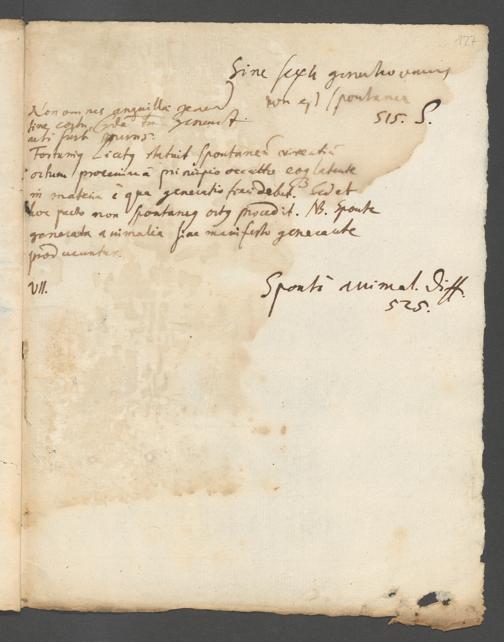 177
Sine sexu generatio omnis
non est spontanea
515. S.
Non omnes anguillæ gener
sine coitu, tn generat.
uti sunt
Fortunius Licetus statuit spontaneū viventiū
ortum proximū à principio occulto eoq latente
in materia è qua generatio fieri debet. Sed at
hoc pacto non spontaneq ortq procedit. NB. Sponte
generata animalia sine manifesto generante
producuntur.
VII.
Spontē animal. diff.
525.